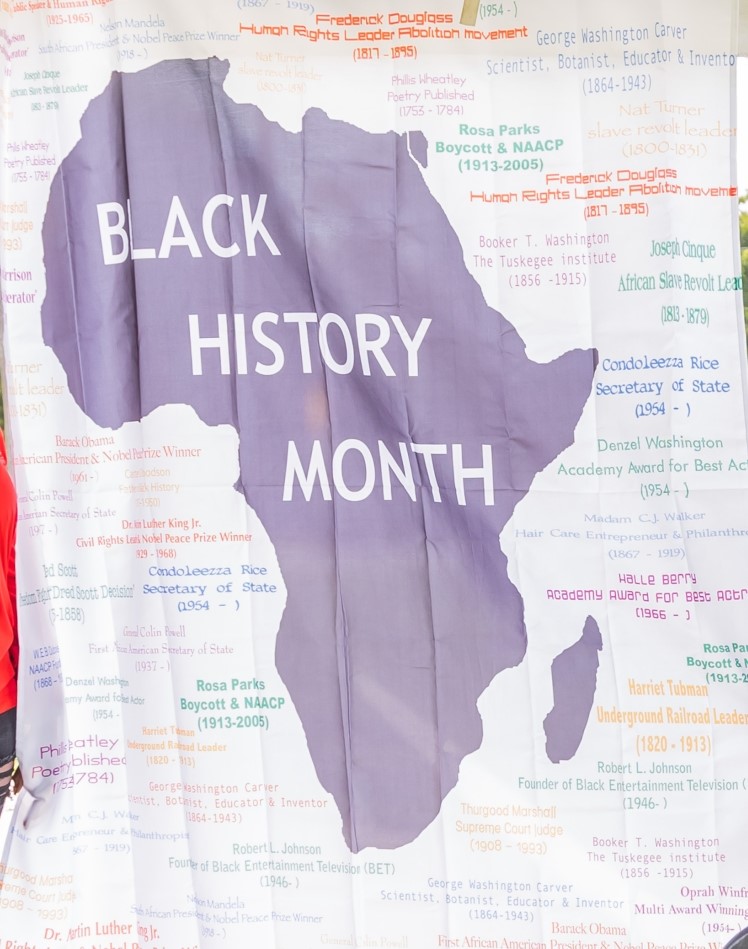 ublic Speaker & Human Rights
(1925-1965)
(1867 - 1919)
Frederick Douglass
Human Rights Leader Abolition movement
(1817 - 1895)
(1954 - )
Nelson Mandela
South African President & Nobel Peace Prize Winner
(1918 - )
George Washington Carver
Scientist, Botanist, Educator & Invento
(1864-1943)
Nat Turner
slave revolt leader
(1800-1831)
Joseph Cinque
African Slave Revolt Leader
(1813 - 1879)
Phillis Wheatley
Poetry Published
(1753 - 1784)
Rosa Parks
Boycott & NAACP
(1913-2005)
Nat Turner
slave revolt leader
(1800-1831)
Phillis Wheatley
Poetry Published
(1753 - 1784)
Frederick Douglass
Human Rights Leader Abolition moveme
(1817 - 1895)
BLACK
HISTORY
MONTH
Booker T. Washington
The Tuskegee institute
(1856 -1915)
Joseph Cinque
African Slave Revolt Lead
(1813-1879)
rrison
Condoleezza Rice
Secretary of State
(1954 - )
urner
lt leader
-1831)
Barack Obama
American President & Nobel Peace Prize Winner
(1961 - )
Denzel Washington
Academy Award for Best Act
(1954 - )
Colin Powell
American Secretary of State
(1937 - )
Dr. Martin Luther King Jr.
Civil Rights Leader Nobel Peace Prize Winner
(1929 - 1968)
Madam C.J. Walker
Hair Care Entrepreneur & Philanthro
(1867 - 1919)
Dred Scott
Freedom Fight 'Dred Scott Decision'
-1858)
Condoleezza Rice
Secretary of State
(1954 - )
Halle Berry
Academy Award For Best Actr
(1966 - )
General Colin Powell
First African American Secretary of State
(1937 - )
W.E.B.
NAACP
(1868 -
Denzel Washington
Actor
(1954 -
Rosa Parks
Boycott & NAACP
(1913-2005)
Rosa Par
Boycott & N
(1913-2
Harriet Tubman
Underground Railroad Leader
(1820 - 1913)
Harriet Tubman
Underground Railroad Leader
(1820 - 1913)
Phillis Wheatley
Poetry Published
(1753-1784)
George Washington Carver
Scientist, Botanist, Educator & Inventor
(1864-1943)
Robert L. Johnson
Founder of Black Entertainment Television (
(1946- )
Mm C.J. Walker
Hair Care Entrepreneur & Philanthropist
1867 - 1919)
Thurgood Marshall
Supreme Court Judge
(1908 - 1993)
Robert L. Johnson
Founder of Black Entertainment Television (BET)
(1946- )
Booker T. Washington
The Tuskegee institute
(1856 -1915)
Thurgood Marshall
Supreme Court Judge
1908 - 1993)
George Washington Carver
Scientist, Botanist, Educator & Inventor
(1864-1943)
Oprah Winfr
Multi Award Winning
(1954-
Nelson Mandela
South African President & Nobel Peace Prize Winner
Dr. Martin Luther King Jr.
Barack Obama
First African American President & Nobel Peace Prize
General Colin Powell